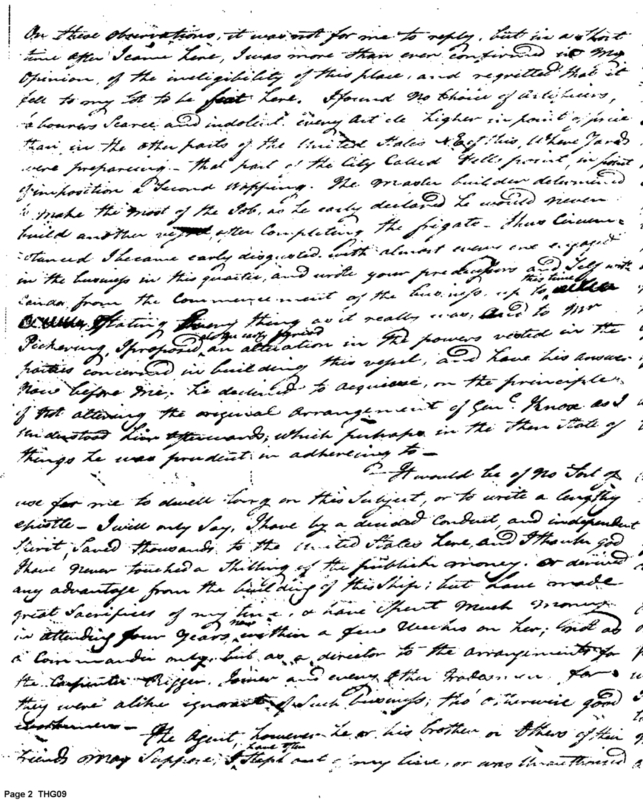 On these observations, it was not for me to reply, but in a short
time after I came here, I was more than ever confirmed in my
Opinion, of the ineligibility of this place, and regretted that it
fell to my lot to be sent here. I found no choice of artificers,
labourers scarce and indolent every article higher in point of price
than in the other parts of the United States & East this, where Yards
were preparing — that part of the City Called Fells point, in point
of imposition a second Wapping. The master builder determined
to make the most of the Job, as he early declared he would never
build another vessel after completing the frigate — thus Circum=
stanced I became early disgusted with almost every one engaged
in the business in this quarter, and wrote your predecessors and Self with
candor, from the Commencement of the business up to this time
Stating every thing as it really was, and to Mr
Pickering, I proposed at an early period an alteration in the powers vested in the
parties concerned in building this vessel, and have his answer
now before me; he declined to acquiesce, on the principle
of not altering the original arrangement of Genl. Knox as I
understood him afterwards; which perhaps in the then State of
things he was prudent in adhereing to —
It would be of no Sort of
use for me to dwell long on this Subject, or to write a lengthy
epistle — I will only Say, I have by a decided Conduct, and independent
Spirit, Saved thousands to the United States here, and I thank god
I have never touched a Shilling of the publick money. or derived
any advantage from the building of this Ship; but have made
great Sacrifices of my time, & have Spent much money
in attending four Years, now within a few Weeks on her; not as
a Commander only but as a director to the arrangements for
the Carpenter Rigger, Joiner and every Other tradesmen, for
they were alike ignorant of Such business; tho' otherwise good
The Agent, however he or his brother or Others of their
friends may Suppose, I have often Steph out of my line, or was unauthorised
Page 2 THG09